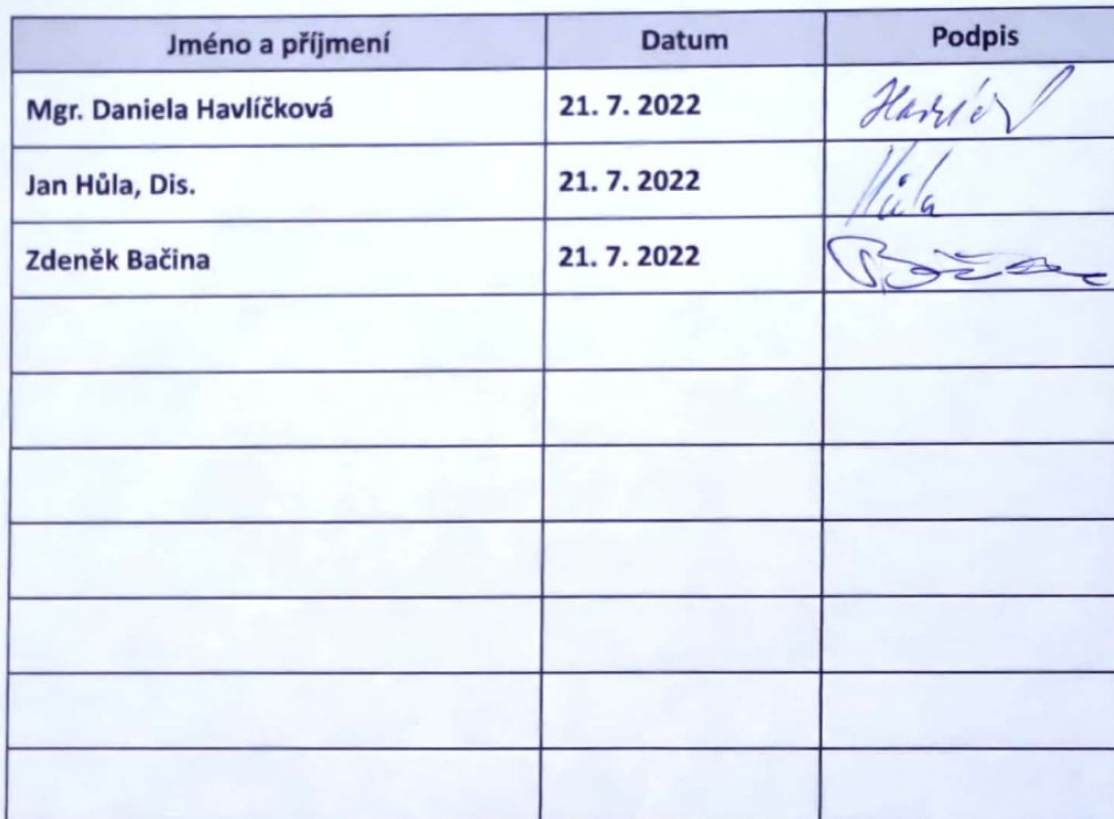 Jméno a příjmení Datum Podpis
Mgr. Daniela Havlíčková 21. 7. 2022
Jan Hůla, Dis. 21. 7. 2022 Hůla
Zdeněk Bačina 21. 7. 2022